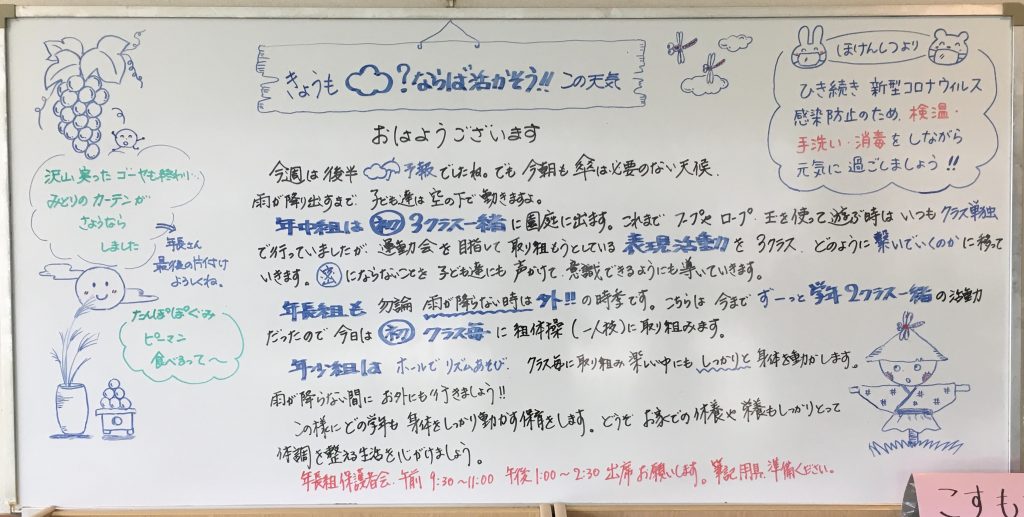 きょうも ?ならば活かそう!! この天気
おはようございます
今週は後半 予報でしたね。でも 今朝も 傘は必要のない天候、
雨が降り出すまで 子ども達は 空の下で動きますよ。
年中組は 初 3クラス一緒に園庭に出ます。これまで フープや ロープ、玉を使って遊ぶ時は いつも クラス単独
で行っていましたが、運動会を目指して 取り組もうとしている 表現活動を 3クラス、どのように 繋いでいくのかに移って
いきます。密にならないことを 子ども達にも 声かけて、意識できるようにも導いていきます。
年長組も 勿論 雨が降らない時は外!!の時季です。こちらは 今まで ずーっと 学年2クラス一緒の活動
だったので 今日は 初 クラス毎に 組体操(一人技)に取り組みます。
年少組は ホールで リズムあそび。 クラス毎に取り組み 楽しい中にも しっかりと 身体を動かします。
雨が降らない間に お外にも行きましょう!!
この様にどの学年も 身体をしっかり動かす保育をします。どうぞ お家での休養や 栄養もしっかりとって
体調を整える生活を心がけましょう。
年長組保護者会、午前 9:30~11:00 午後1:00~2:30 出席お願いします。筆記用具、準備ください。
ほけんしつより
ひき続き 新型コロナウィルス
感染防止のため、検温・
手洗い・消毒をしながら
元気に過ごしましょう!!
沢山実った ゴーヤも終わり・・
みどりの カーテンが
さようなら
しました
年長さん
最後の片付け
よろしくね。
たんぽぽぐみ
ピーマン
食べるって〜
こすも